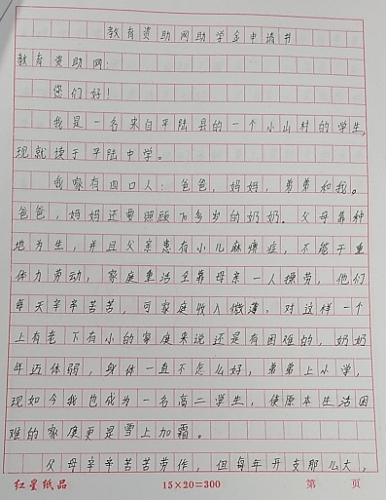 教育资助网助学金申请书
教育资助网:
您们好!
我是一名来自平陆县的一个小山村的学生,
现就读于平陆中学。
我家有四口人:爸爸,妈妈,弟弟和我。
爸爸,妈妈还要照顾70多岁的奶奶。父母靠种
地为生,并且父亲患有小儿麻痹症,不能干重
体力劳动,家庭重活全靠母亲一人操劳,他们
每天辛辛苦苦,可家庭收入微薄,对这样一个
上有老下有小的家庭来说还是有困难的,奶奶
年迈体弱,身体一直不怎么好,弟弟上小学,
现如今我也成为一名高二学生,使原本生活困
难的家庭更是雪上加霜。
父母辛辛苦苦劳作,但每年开支那么大,
红星纸品 15×20=300 第 页